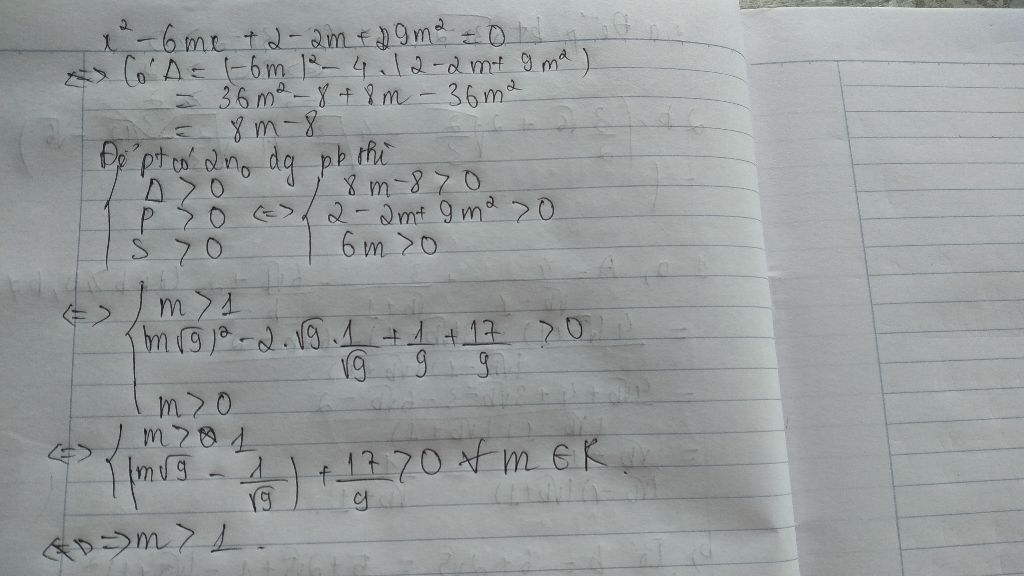 x² - 6mx + 2 - 2m + 9m² = 0
<=> Có Δ = (-6m)² - 4.(2 - 2m + 9m²)
= 36m² - 8 + 8m - 36m²
= 8m - 8
Để pt có 2 no dg pb thì
{ Δ > 0 { 8m - 8 > 0
P > 0 <=> 2 - 2m + 9m² > 0
S > 0 6m > 0
<=> { m > 1
(m√9)² - 2.√9.1/√9 + 1/9 + 17/9 > 0
m > 0
<=> { m > 1
(m√9 - 1/√9) + 17/9 > 0 ∀ m ∈ R.
=> m > 1.